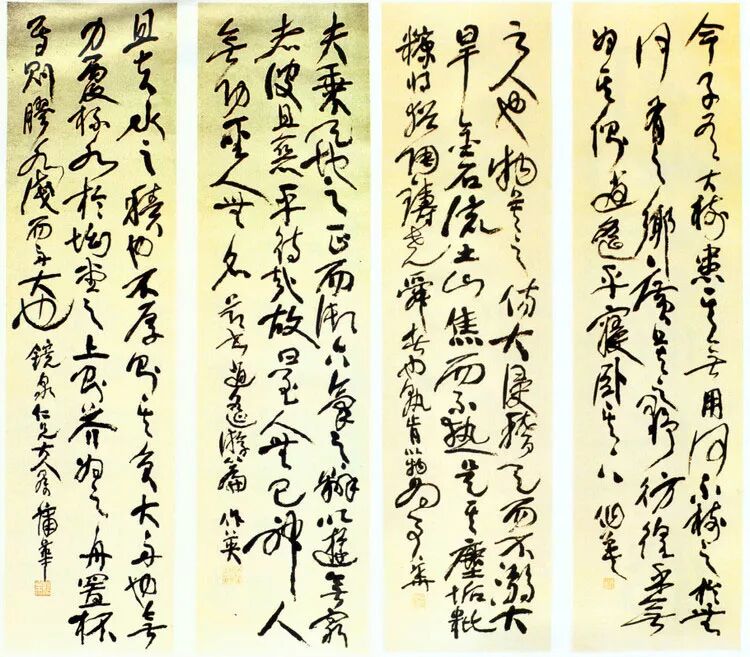 今子有大樹患其無用何不樹之於無
何有之鄉廣莫之野彷徨乎無
為其側逍遙乎寢臥其下
之人也物莫之傷大浸稽天而不溺大
旱金石流土山焦而不熱是其塵垢粃
糠將猶陶鑄堯舜者也孰肯以物為事
夫乘天地之正而御六氣之辯以遊無窮
者彼且惡乎待哉故曰至人無己神人
無功聖人無名 逍遙游篇 作英
且夫水之積也不厚則其負大舟也無
力覆杯水於坳堂之上則芥為之舟置杯
焉則膠水淺而舟大也 鏡泉仁兄大人屬 蒲華